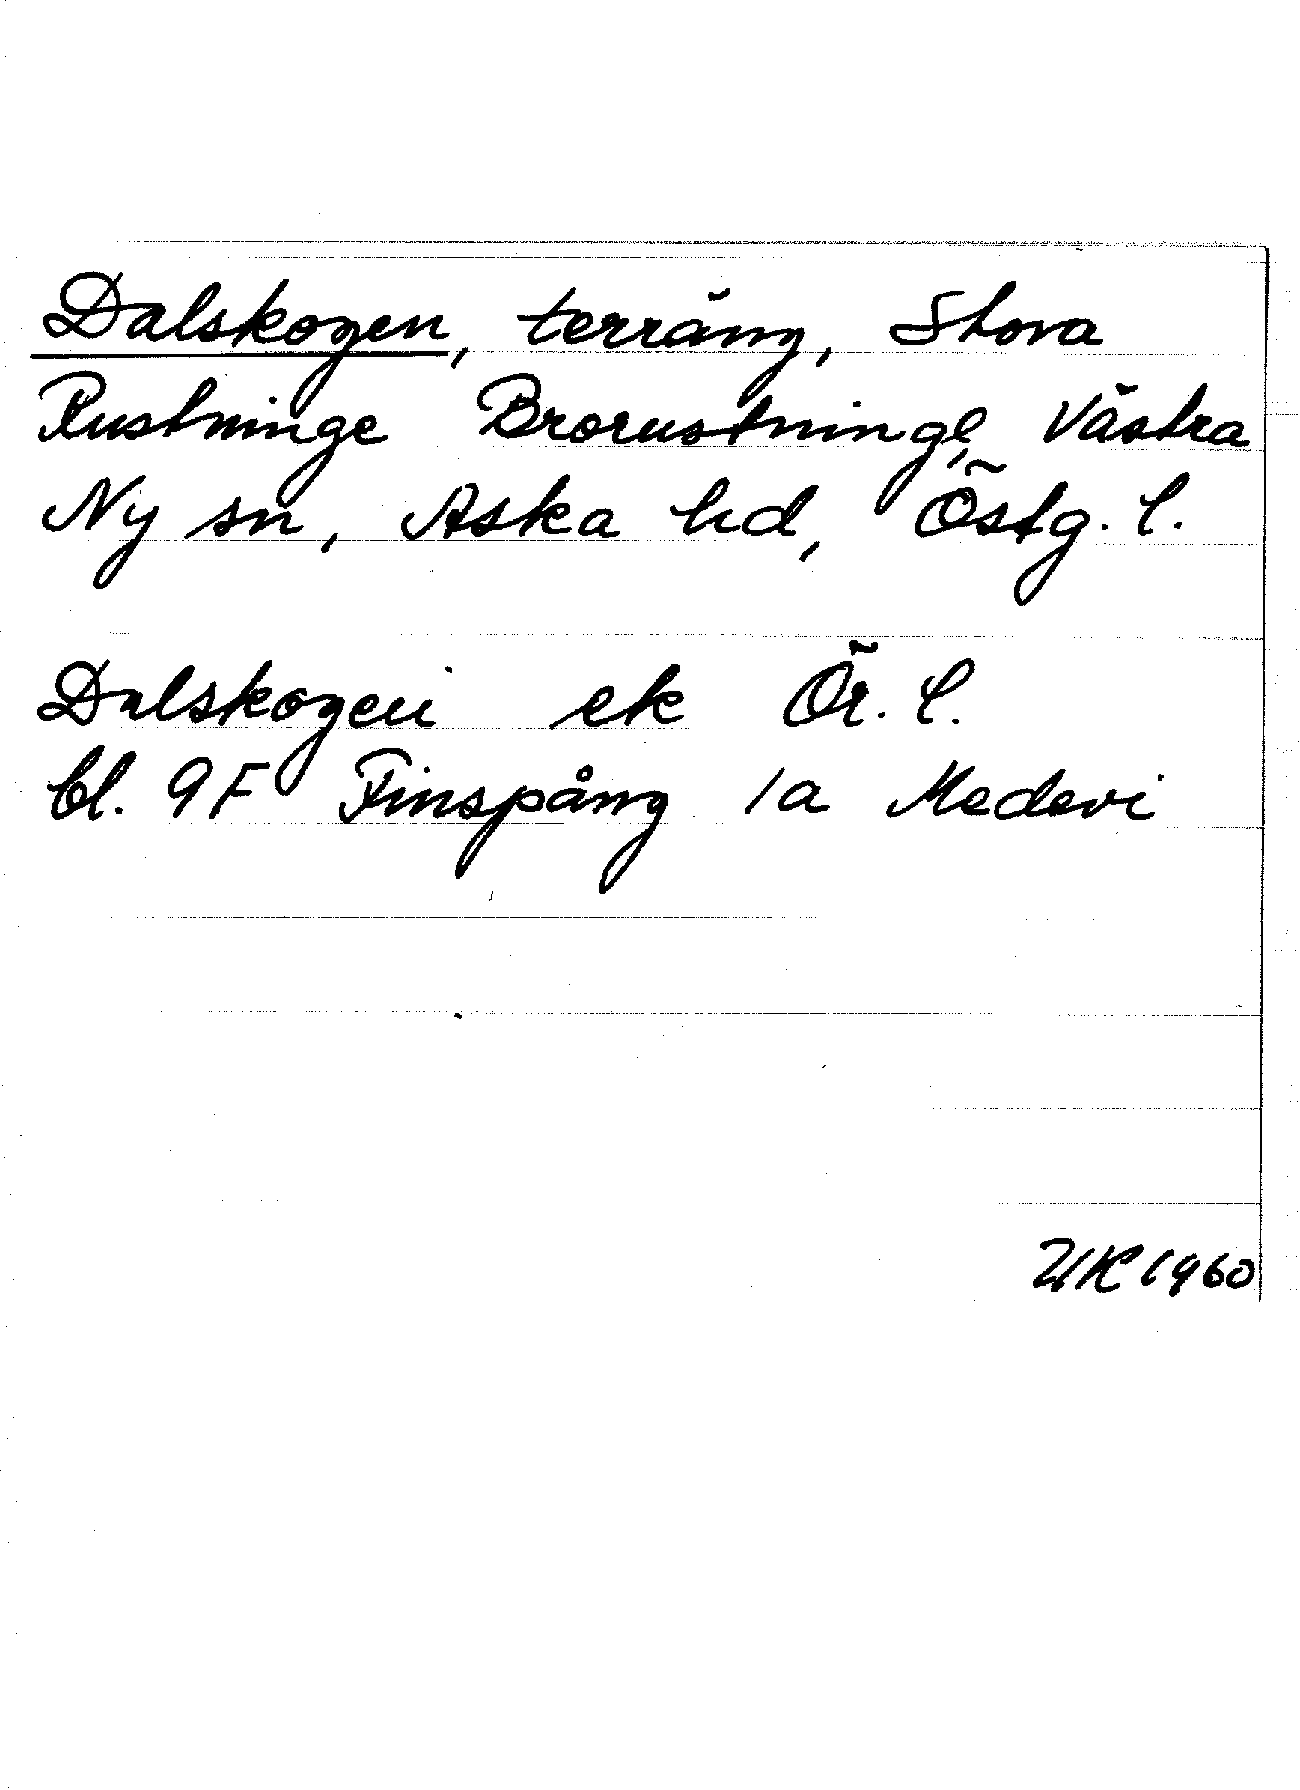 Dalskogen, terräng, Stora
Rustninge Brorustninge, Västra
Ny sn, Aska hd, Östg. l.
Dalskogen ek Ör. l.
bl. 9F Finspång 1a Medevi
UK 1960